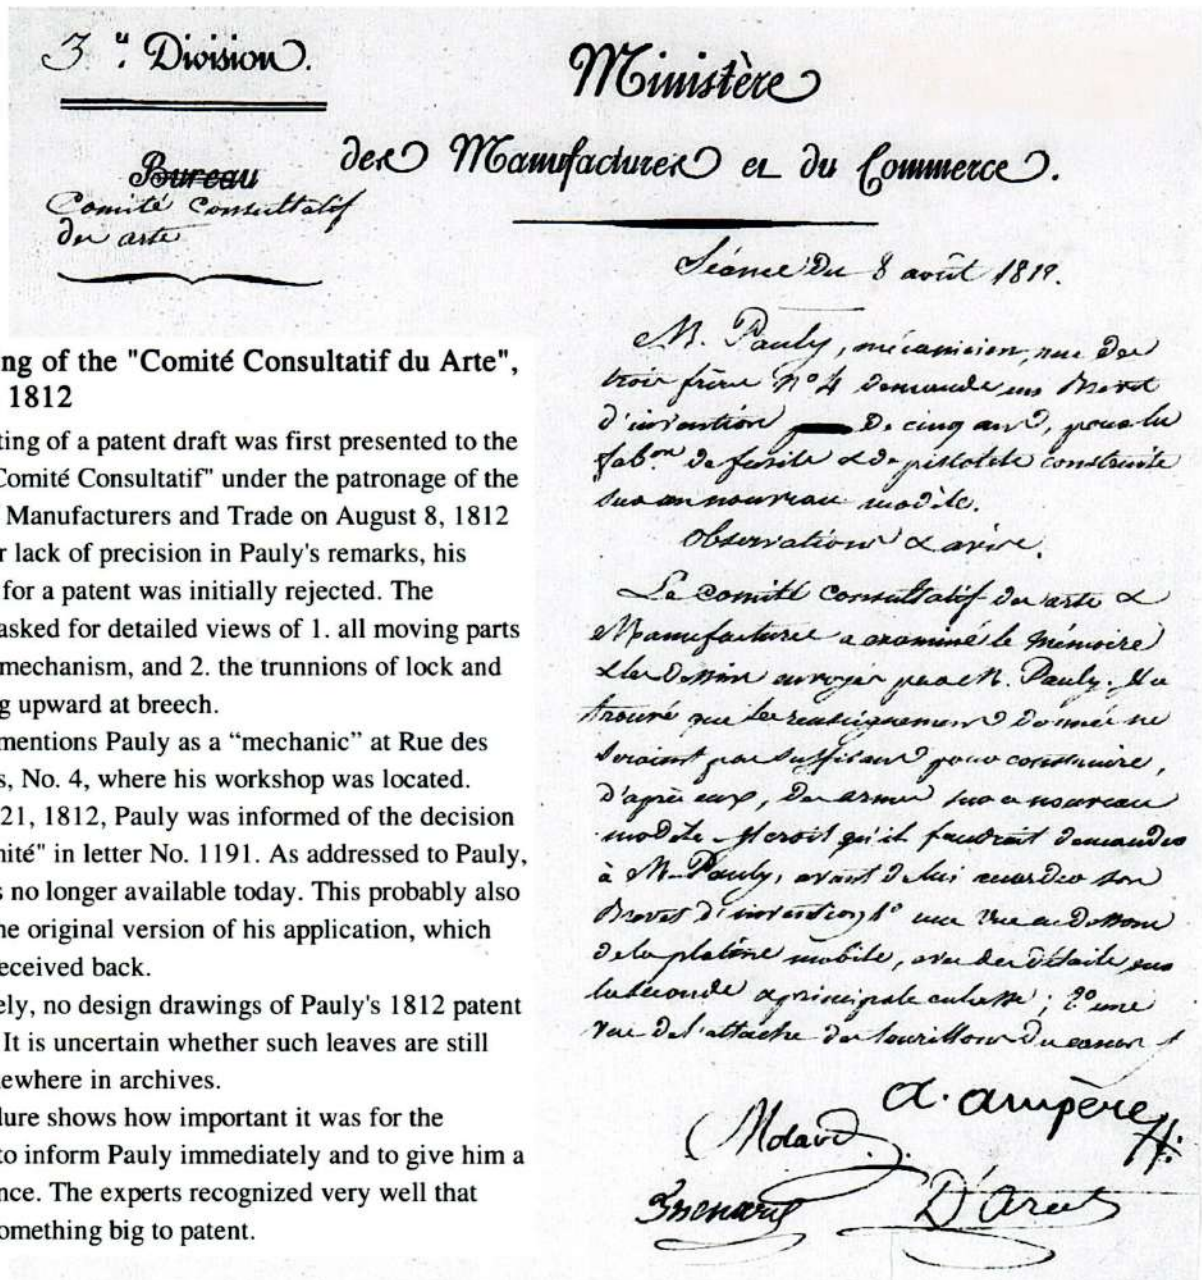 3.e Division.
Bureau
Comité Consultatif
des arts
Ministère
des Manufactures et du Commerce.
Séance du 8 août 1812.
M. Pauly, mécanicien, rue des
trois frères n° 4 demande un Brevet
d'invention de cinq ans, pour la
fab.on de fusils & de pistolets construits
sur un nouveau modèle.
Observations & avis.
Le comité consultatif des arts &
Manufactures a examiné le mémoire
& les dessins envoyés par M. Pauly. Il a
trouvé que les renseignemens donnés ne
seraient pas suffisans pour construire,
d'après eux, des armes sur ce nouveau
modèle. Il croit qu'il faudrait demander
à M. Pauly, avant de lui accorder son
Brevet d'invention, 1° une vue en dessous
de la platine mobile, avec des détails sur
la seconde & principale culasse; 2° une
vue de l'attache des tourillons du canon
a. ampère
Molard
D'Arcet
ng of the "Comité Consultatif du Arte",
1812
ting of a patent draft was first presented to the
Comité Consultatif" under the patronage of the
Manufacturers and Trade on August 8, 1812
r lack of precision in Pauly's remarks, his
for a patent was initially rejected. The
asked for detailed views of 1. all moving parts
mechanism, and 2. the trunnions of lock and
g upward at breech.
mentions Pauly as a “mechanic” at Rue des
s, No. 4, where his workshop was located.
21, 1812, Pauly was informed of the decision
nité" in letter No. 1191. As addressed to Pauly,
s no longer available today. This probably also
he original version of his application, which
eceived back.
ely, no design drawings of Pauly's 1812 patent
It is uncertain whether such leaves are still
ewhere in archives.
lure shows how important it was for the
to inform Pauly immediately and to give him a
nce. The experts recognized very well that
omething big to patent.